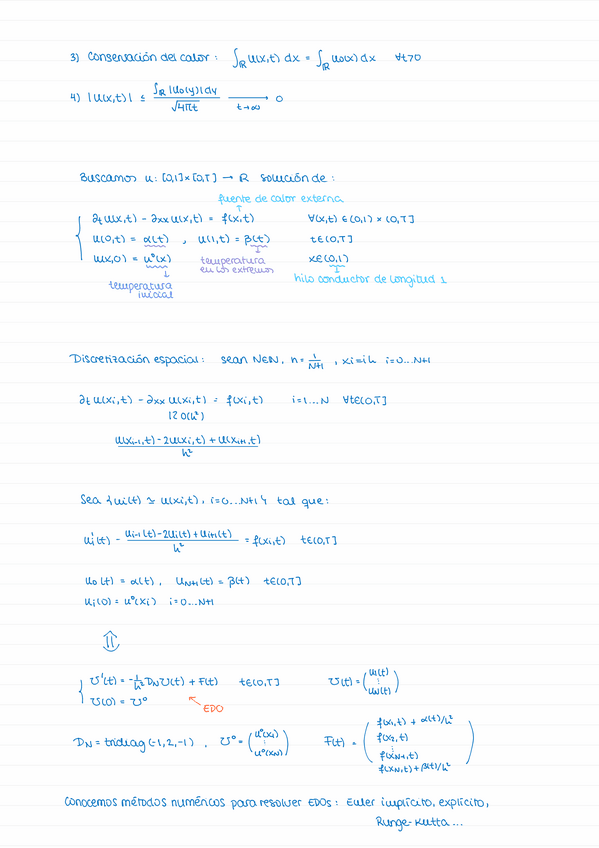 3) Conservación del calor: ∫_ℝ u(x,t) dx = ∫_ℝ u₀(x) dx ∀t>0
4) |u(x,t)| ≤ ∫_ℝ |u₀(y)| dy / √4πt ⟶ 0
t→∞
Buscamos u: [0,1]×[0,T] → ℝ solución de:
fuente de calor externa
∂t u(x,t) - ∂xx u(x,t) = f(x,t) ∀(x,t) ∈ (0,1) × (0,T]
u(0,t) = α(t), u(1,t) = β(t) t∈(0,T]
u(x,0) = u⁰(x) x∈(0,1)
temperatura inicial
temperatura en los extremos
hilo conductor de longitud 1
Discretización espacial: sean N∈ℕ, h = 1/(N+1), xi = ih i=0...N+1
∂t u(xi,t) - ∂xx u(xi,t) = f(xi,t) i=1...N ∀t∈(0,T]
≀≀ O(h²)
(u(xi-1,t) - 2u(xi,t) + u(xi+1,t)) / h²
Sea {ui(t) ≃ u(xi,t), i=0...N+1} tal que:
ui'(t) - (ui-1(t) - 2ui(t) + ui+1(t)) / h² = f(xi,t) t∈(0,T]
u₀(t) = α(t), uN+1(t) = β(t) t∈(0,T]
ui(0) = u⁰(xi) i=0...N+1
⇕
U'(t) = -1/h² DN U(t) + F(t) t∈(0,T] U(t) = (u₁(t) ⋮ uN(t))
U(0) = U⁰
EDO
DN = tridiag(-1,2,-1), U⁰ = (u⁰(x₁) ⋮ u⁰(xN)) F(t) = (f(x₁,t) + α(t)/h² f(x₂,t) ⋮ f(xN-1,t) f(xN,t) + β(t)/h²)
Conocemos métodos numéricos para resolver EDOs: Euler implícito, explícito,
Runge-Kutta...